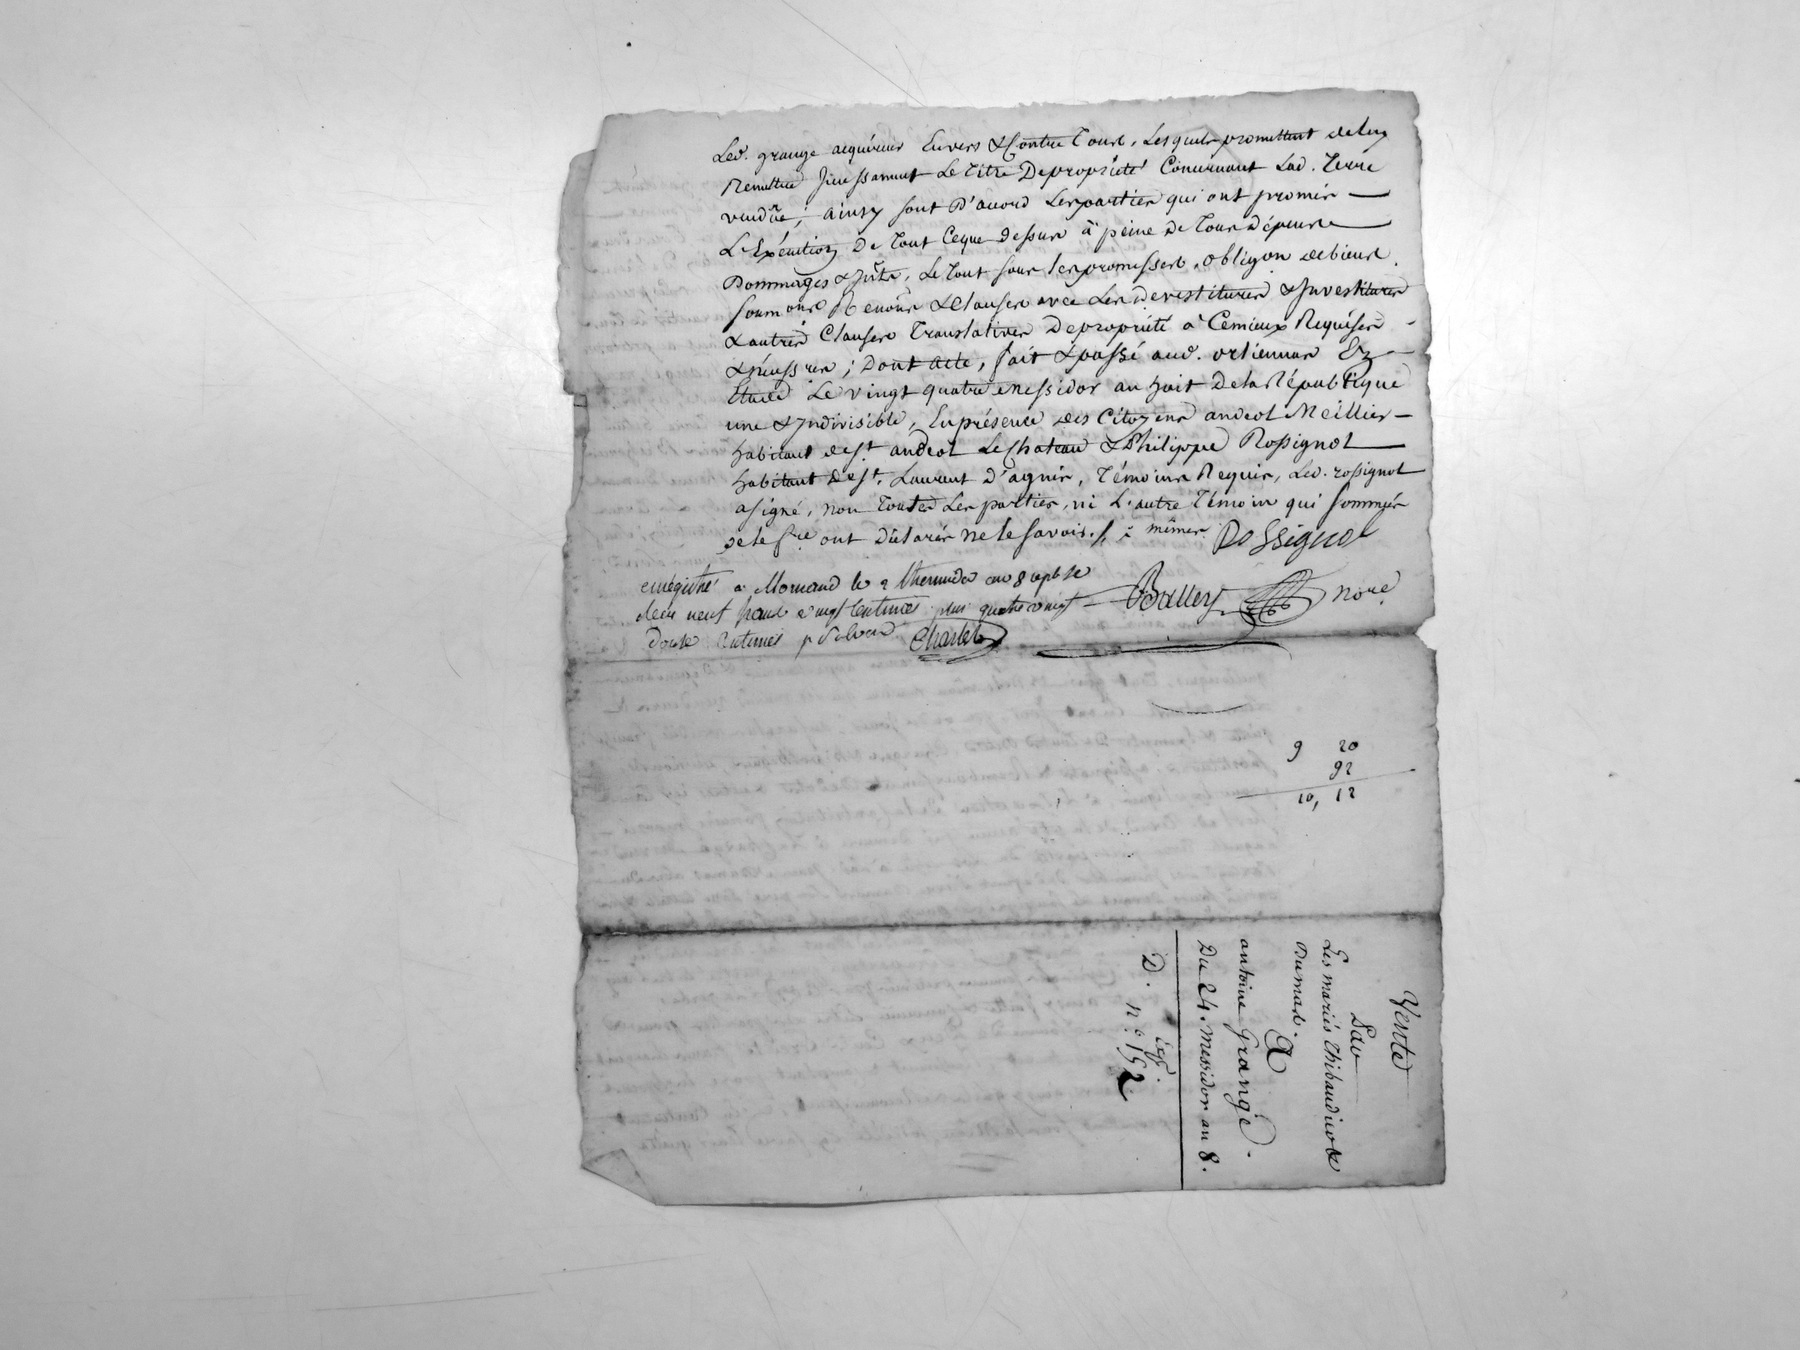 Led. grange acquéreur Envers & Contre Tous, Lesquels promettent de luy
Remettre Incessament Le Titre De propriété Concernant Lad. Terre
venduë ; ainsy sont D'accord Les parties qui ont promis
L'Exécution De Tout Ceque Dessus à peine De Tous Dépens
Dommages & Jnts, Le Tout sous les promesses, obligon de biens,
soumons Renons & Clauses avec Les Devestitures & Jnvestitures
& autres Clauses Translatives De propriété à Cemieux Requises
& nécessres ; Dont acte, fait & passé aud. orliennas En
Etude Le vingt quatre messidor an huit De la République
une & Jndivisible, En présence des Citoyens andéol Meillier
habitant de St. andéol Le Chateau & Philippe Rossignol
habitant De St. Laurent D'agnis, Témoins Requis, Led. rossignol
a signé, non Toutes Les parties, ni L'autre Témoin qui sommés
de le fre ont Déclarés ne le savoir. mêmes Rossignol
enregistré à Mornand le 2 thermidor an 8
Reçu neuf francs vingt Centimes plus quatre vingt Ballery Nore.
Douze Centimes Charlet
9 20
92
10, 12
Vente
Par
Les mariés thibaudier &
Dumas.
A
antoine Grange.
Du 24. Messidor an 8.
D. no. 152